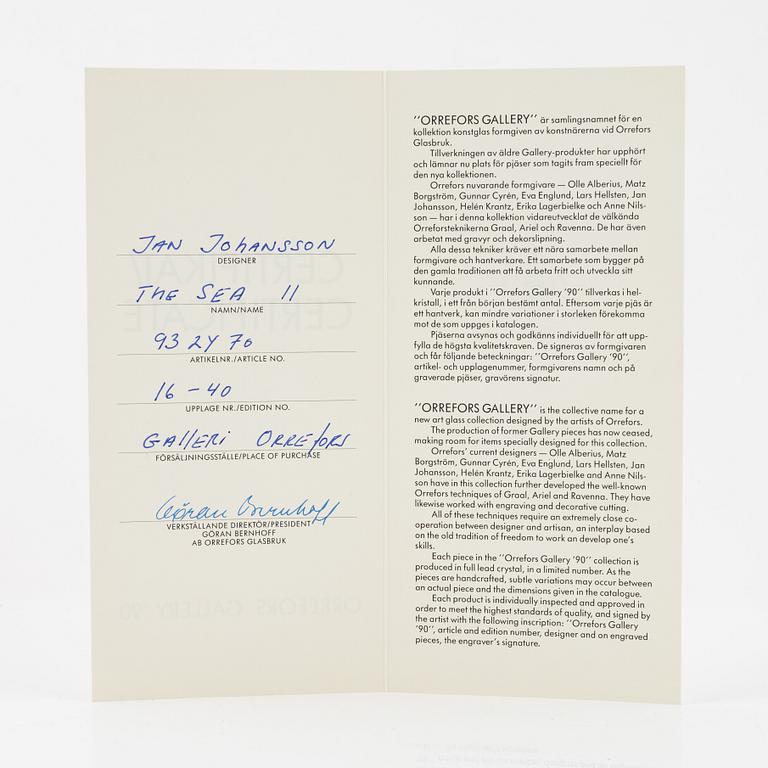 JAN JOHANSSON
DESIGNER
THE SEA II
NAMN/NAME
93 2Y 70
ARTIKELNR./ARTICLE NO.
16 - 40
UPPLAGE NR./EDITION NO.
GAllERI ORREfORS
FÖRSÄLJNINGSSTÄLLE/PLACE OF PURCHASE
Göran Bernhoff
VERKSTÄLLANDE DIREKTÖR/PRESIDENT
GÖRAN BERNHOFF
AB ORREFORS GLASBRUK
''ORREFORS GALLERY'' är samlingsnamnet för en
kollektion konstglas formgiven av konstnärerna vid Orrefors
Glasbruk.
Tillverkningen av äldre Gallery-produkter har upphört
och lämnar nu plats för pjäser som tagits fram speciellt för
den nya kollektionen.
Orrefors nuvarande formgivare — Olle Alberius, Matz
Borgström, Gunnar Cyrén, Eva Englund, Lars Hellsten, Jan
Johansson, Helén Krantz, Erika Lagerbielke och Anne Nils-
son — har i denna kollektion vidareutvecklat de välkända
Orreforsteknikerna Graal, Ariel och Ravenna. De har även
arbetat med gravyr och dekorslipning.
Alla dessa tekniker kräver ett nära samarbete mellan
formgivare och hantverkare. Ett samarbete som bygger på
den gamla traditionen att få arbeta fritt och utveckla sitt
kunnande.
Varje produkt i ''Orrefors Gallery '90'' tillverkas i hel-
kristall, i ett från början bestämt antal. Eftersom varje pjäs är
ett hantverk, kan mindre variationer i storleken förekomma
mot de som uppges i katalogen.
Pjäserna avsynas och godkänns individuellt för att upp-
fylla de högsta kvalitetskraven. De signeras av formgivaren
och får följande beteckningar: ''Orrefors Gallery '90'',
artikel- och upplagenummer, formgivarens namn och på
graverade pjäser, gravörens signatur.
''ORREFORS GALLERY'' is the collective name for a
new art glass collection designed by the artists of Orrefors.
The production of former Gallery pieces has now ceased,
making room for items specially designed for this collection.
Orrefors' current designers — Olle Alberius, Matz
Borgström, Gunnar Cyrén, Eva Englund, Lars Hellsten, Jan
Johansson, Helén Krantz, Erika Lagerbielke and Anne Nils-
son have in this collection further developed the well-known
Orrefors techniques of Graal, Ariel and Ravenna. They have
likewise worked with engraving and decorative cutting.
All of these techniques require an extremely close co-
operation between designer and artisan, an interplay based
on the old tradition of freedom to work an develop one's
skills.
Each piece in the ''Orrefors Gallery '90'' collection is
produced in full lead crystal, in a limited number. As the
pieces are handcrafted, subtle variations may occur between
an actual piece and the dimensions given in the catalogue.
Each product is individually inspected and approved in
order to meet the highest standards of quality, and signed by
the artist with the following inscription: ''Orrefors Gallery
'90'', article and edition number, designer and on engraved
pieces, the engraver's signature.